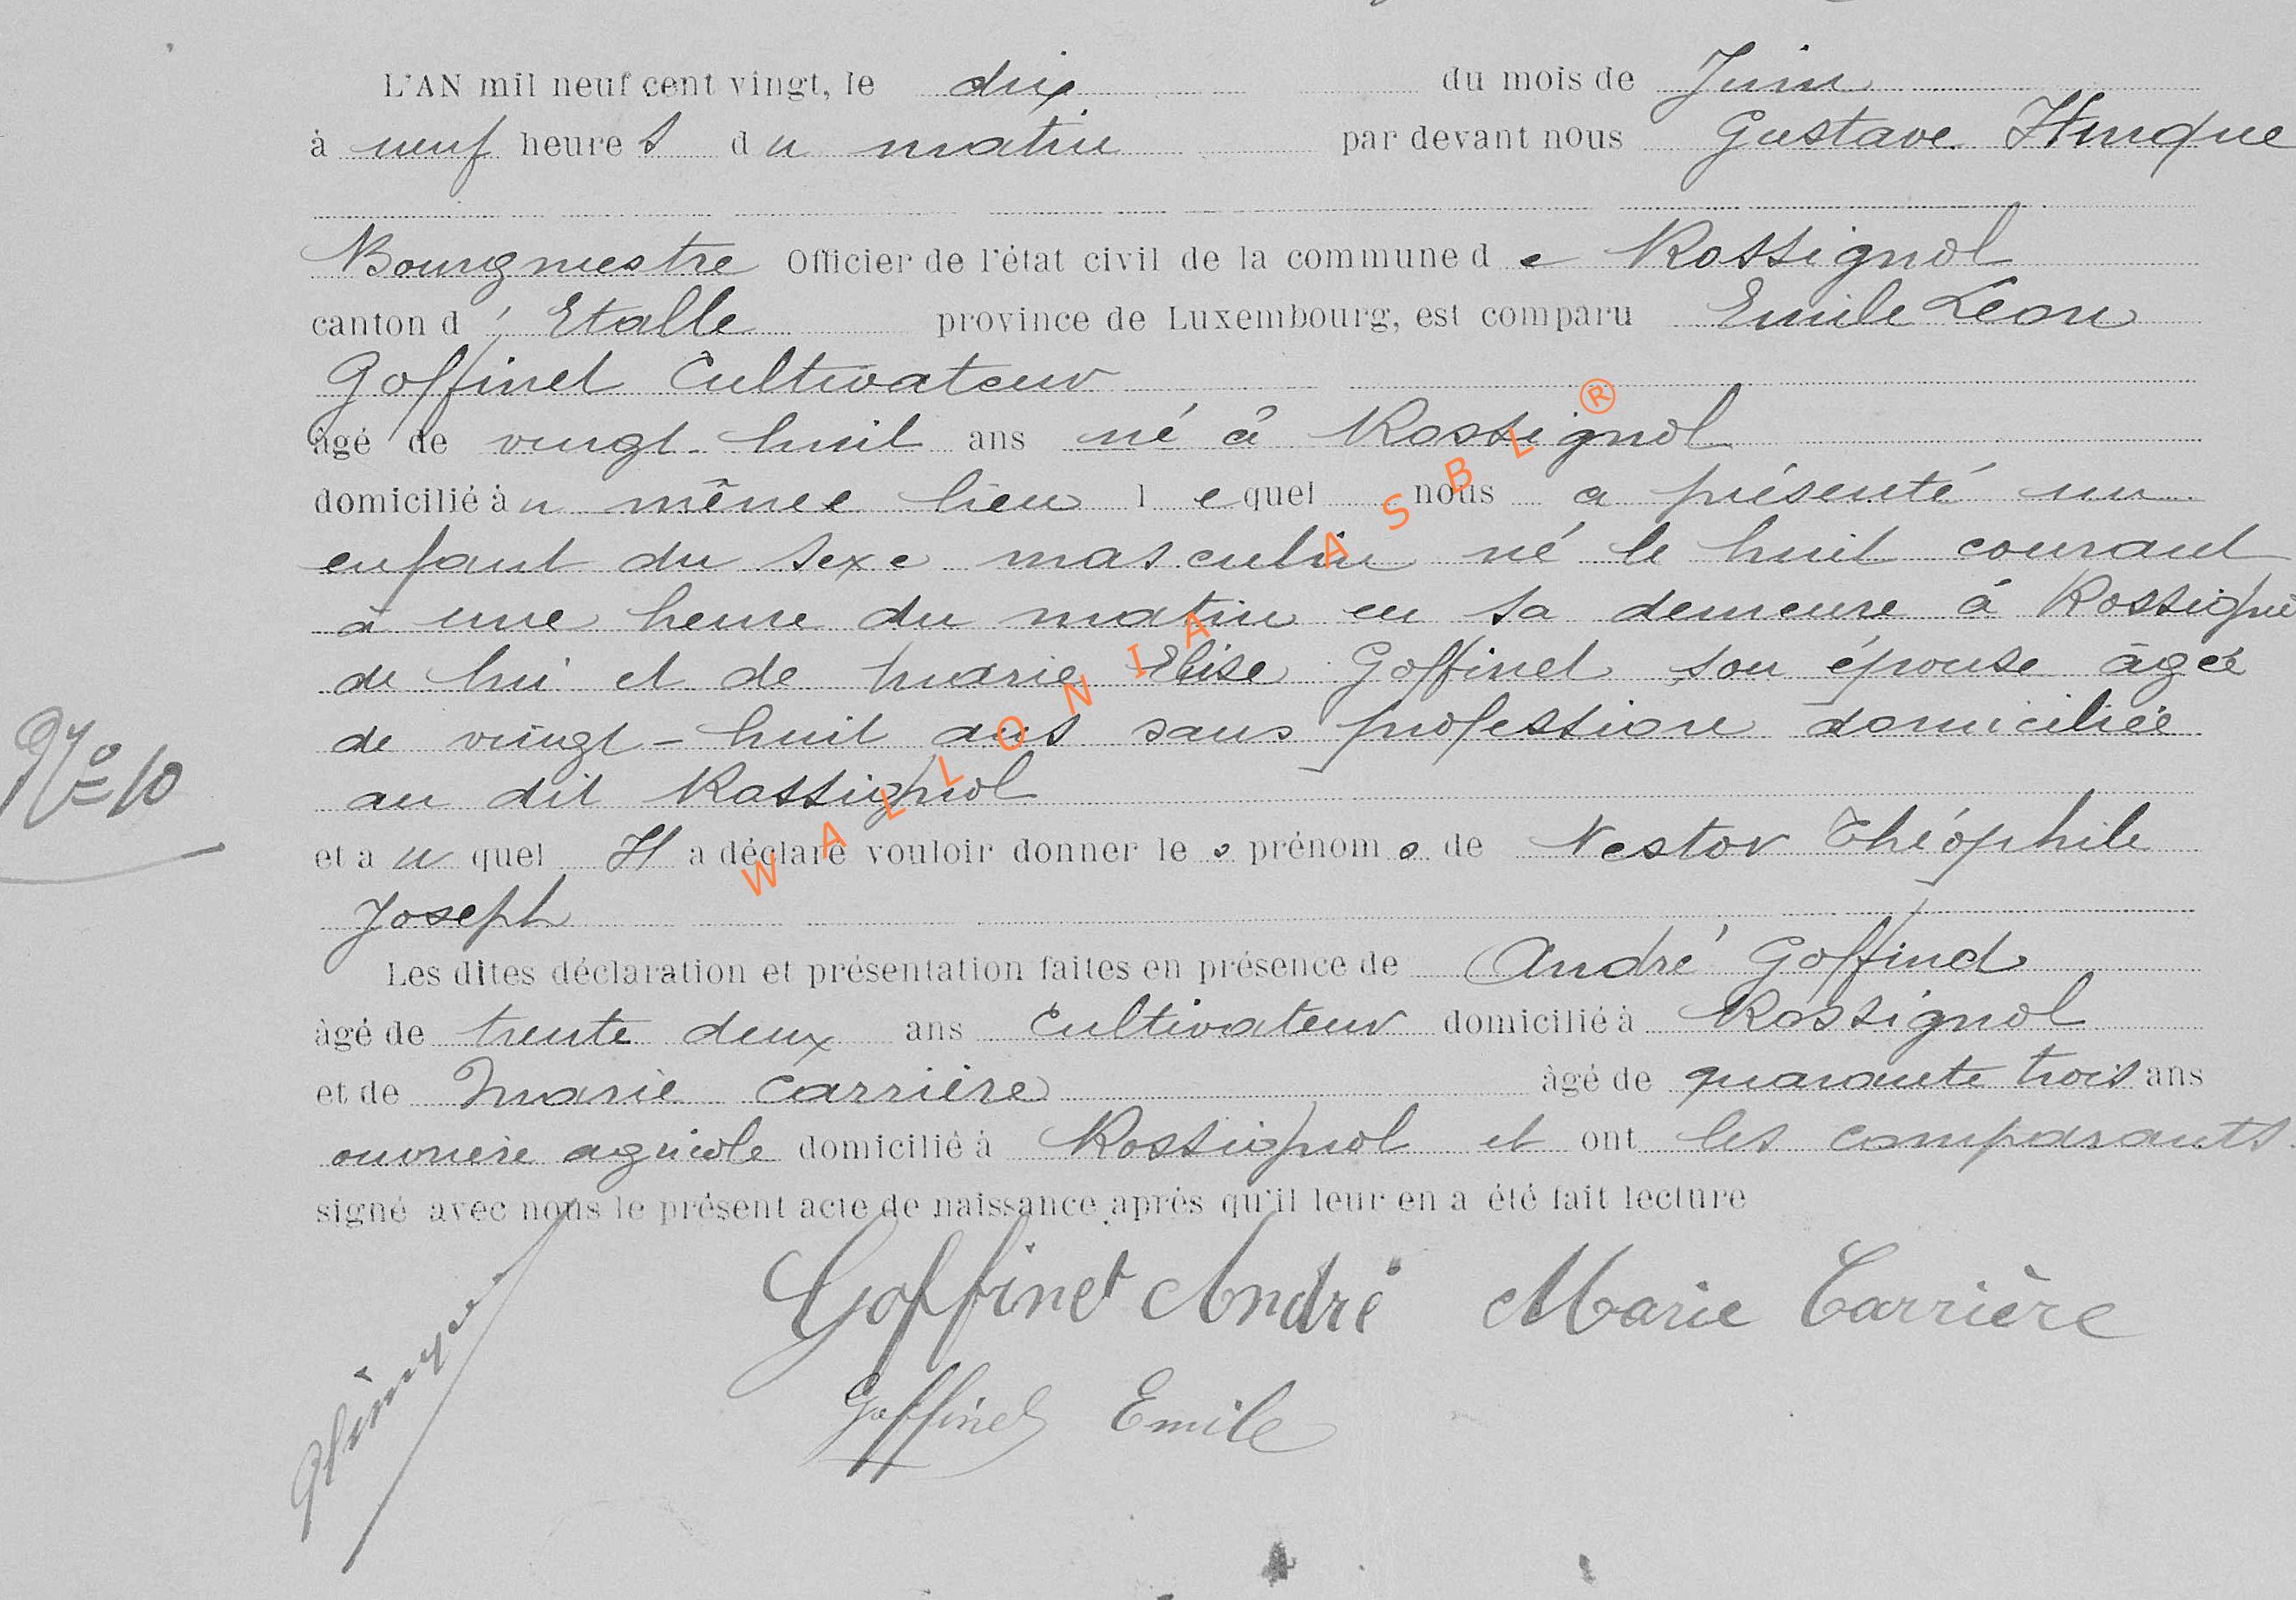 L'AN mil neuf cent vingt, le dix du mois de Juin
à neuf heures du matin par devant nous Gustave Hurque
Bourgmestre Officier de l'état civil de la commune de Rossignol
canton d'Etalle province de Luxembourg, est comparu Emile Léon
Goffinet Cultivateur
âgé de vingt-huit ans né à Rossignol
domicilié au même lieu lequel nous a présenté un
enfant du sexe masculin né le huit courant
à une heure du matin en sa demeure à Rossignol
de lui et de Marie Elise Goffinet son épouse âgée
de vingt-huit ans sans profession domiciliée
N° 10
au dit Rossignol
et auquel Il a déclaré vouloir donner les prénoms de Nestor Théophile
Joseph
Les dites déclaration et présentation faites en présence de André Goffinet
âgé de trente deux ans Cultivateur domicilié à Rossignol
et de Marie Carrière âgé de quarante trois ans
ouvrière agricole domicilié à Rossignol et ont les comparants
signé avec nous le présent acte de naissance après qu'il leur en a été fait lecture
Goffinet André Marie Carrière
Goffinet Emile
WALLONIA ASBL ®